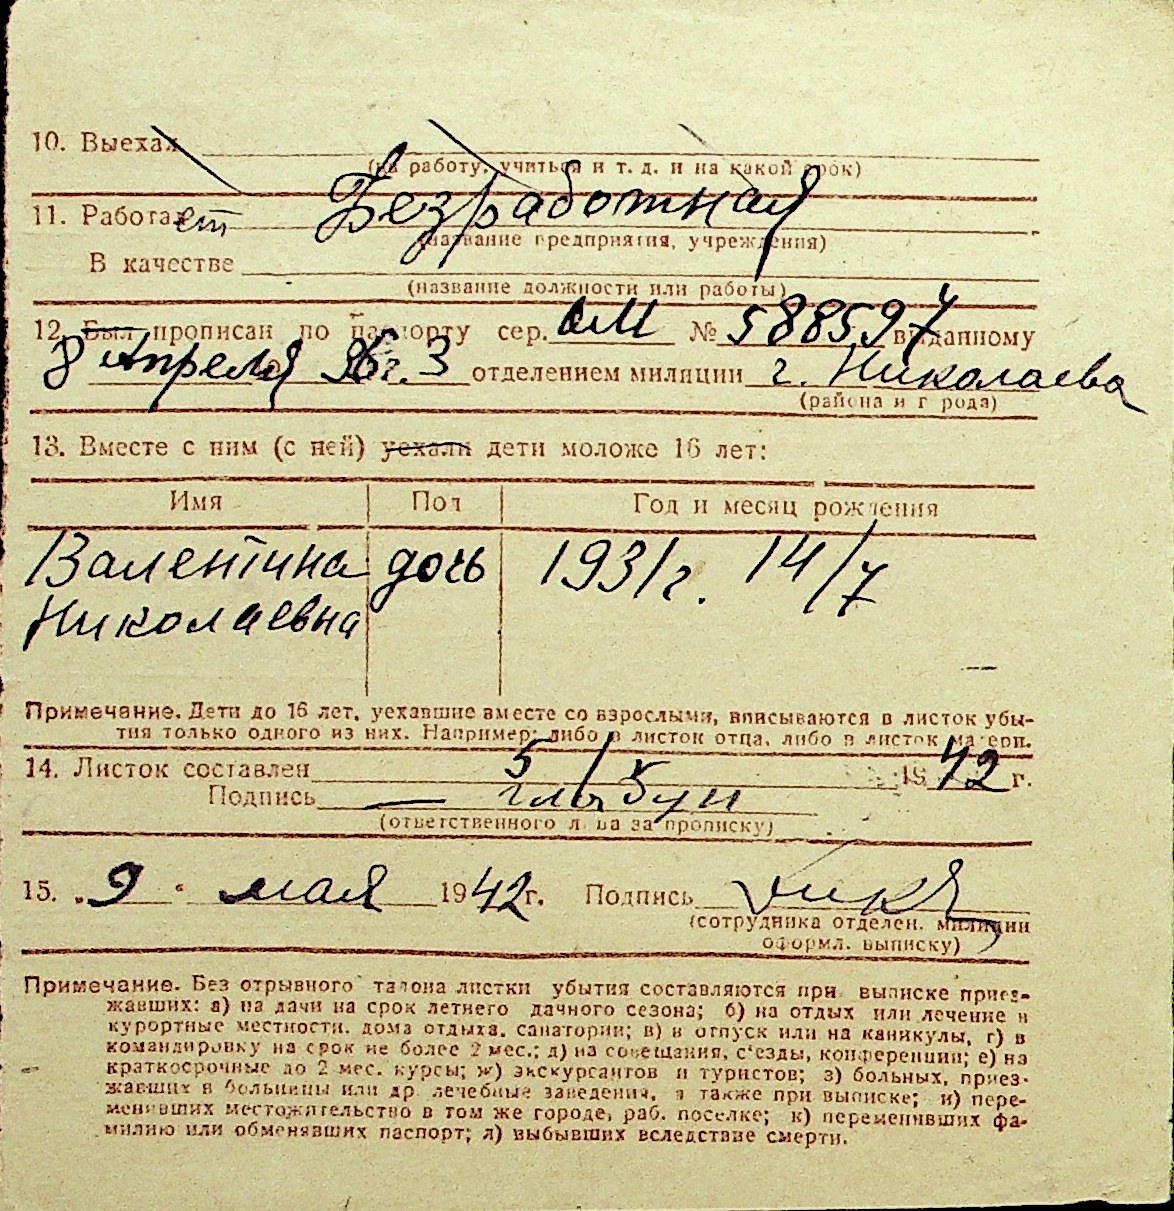 10. Выехал
(на работу, учиться и т. д. и на какой срок)
11. Работает Безработная
(название предприятия, учреждения)
В качестве
(название должности или работы)
12. Был прописан по паспорту сер. АМ № 588597 выданному
8 Апреля 36г. 3 отделением милиции г. Николаева
(района и города)
13. Вместе с ним (с ней) уехали дети моложе 16 лет:
Имя Пол Год и месяц рождения
Валентина дочь 1931г. 14/7
Николаевна
Примечание. Дети до 16 лет, уехавшие вместе со взрослыми, вписываются в листок убы-
тия только одного из них. Например: либо в листок отца, либо в листок матери.
14. Листок составлен 5/5 1942 г.
Подпись
(ответственного лица за прописку)
15. „9" мая 1942г. Подпись
(сотрудника отделен. милиции
оформл. выписку)
Примечание. Без отрывного талона листки убытия составляются при выписке приез-
жавших: а) на дачи на срок летнего дачного сезона; б) на отдых или лечение в
курортные местности, дома отдыха, санатории; в) в отпуск или на каникулы, г) в
командировку на срок не более 2 мес.; д) на совещания, с'езды, конференции; е) на
краткосрочные до 2 мес. курсы; ж) экскурсантов и туристов; з) больных, приез-
жавших в больницы или др. лечебные заведения, а также при выписке; и) пере-
менивших местожительство в том же городе, раб. поселке; к) переменивших фа-
милию или обменявших паспорт; л) выбывших вследствие смерти.